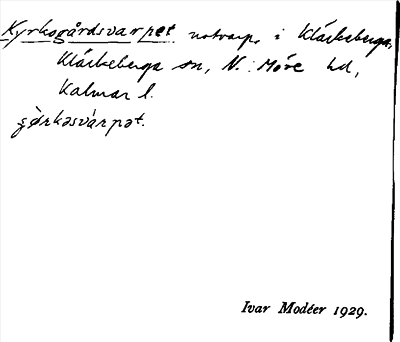 Kyrkogårdsvarpet notvarp, i Kläckeberga,
Kläckeberga sn, N. Möre hd,
Kalmar l.
Ivar Modéer 1929.